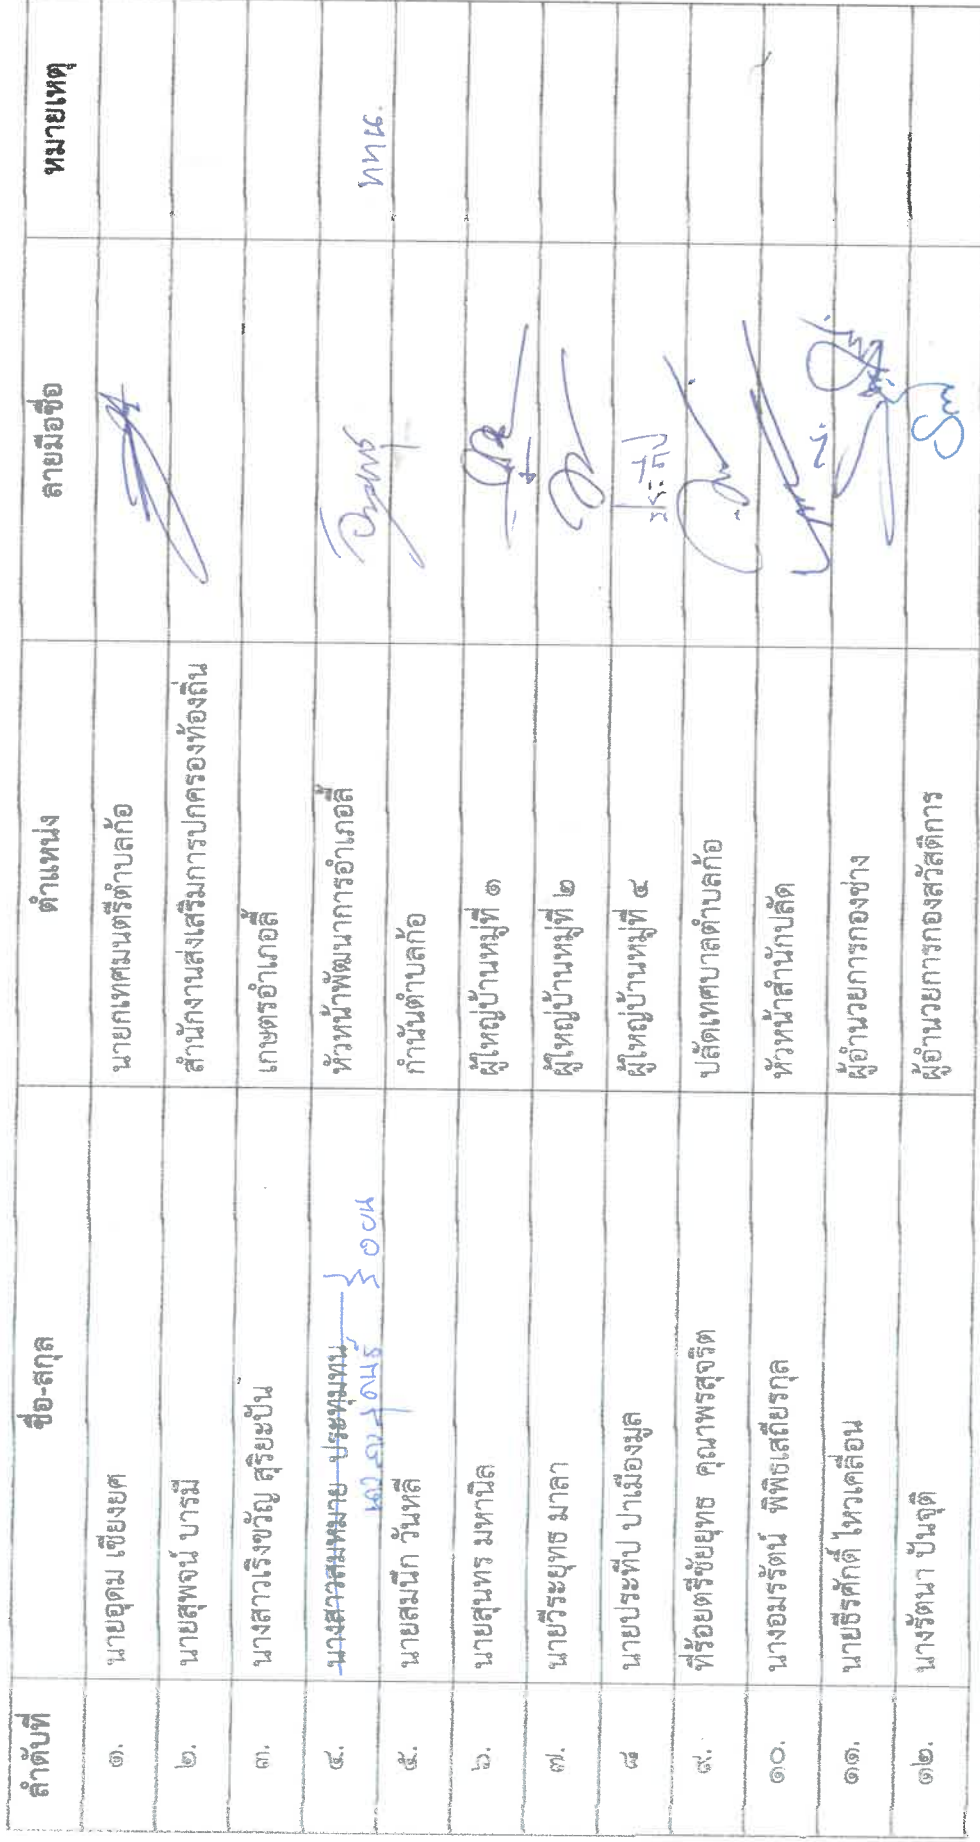 ลำดับที่ ชื่อ-สกุล ตำแหน่ง ลายมือชื่อ หมายเหตุ
๑. นายอุดม เชียงยศ นายกเทศมนตรีตำบลก้อ
๒. นายสุพจน์ บารมี สำนักงานส่งเสริมการปกครองท้องถิ่น
๓. นางสาวเริงขวัญ สุริยะปัน เกษตรอำเภอลี้
๔. นางสาวสมหมาย ประทุมทน หัวหน้าพัฒนาการอำเภอลี้ ทน.
๕. นายสมนึก วันหลี กำนันตำบลก้อ
๖. นายสุนทร มหานิล ผู้ใหญ่บ้านหมู่ที่ ๑
๗. นายวีระยุทธ มาลา ผู้ใหญ่บ้านหมู่ที่ ๒
๘ นายประทีป ปาเมืองมูล ผู้ใหญ่บ้านหมู่ที่ ๔ ประทีป
๙. ที่ร้อยตรีชัยยุทธ คุณาพรสุจริต ปลัดเทศบาลตำบลก้อ
๑๐. นางอมรรัตน์ พิพิธเสถียรกุล หัวหน้าสำนักปลัด
๑๑. นายธีรศักดิ์ ไหวเคลื่อน ผู้อำนวยการกองช่าง
๑๒. นางรัตนา ปันจุติ ผู้อำนวยการกองสวัสดิการ